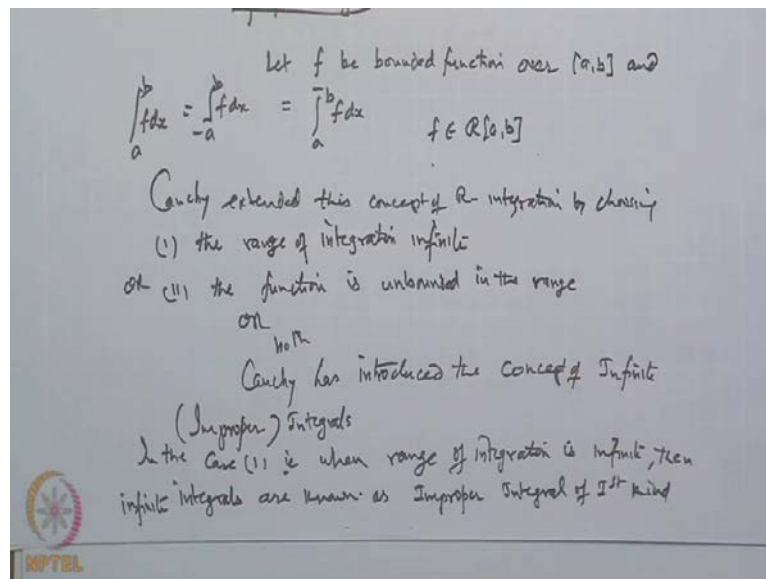 Let f be bounded function over [a,b] and
∫_a^b f dx = ∫_{-a}^b f dx = ∫_a^{-b} f dx f ∈ R[a,b]
Cauchy extended this concept of R- integration by choosing
(1) the range of integration infinite
OR (11) the function is unbounded in the range
OR
both
Cauchy has introduced the Concept of Infinite
(Improper) Integrals
In the Case (1) ie when range of integration is infinite, then
infinite integrals are known as Improper Integral of Ist kind
NPTEL